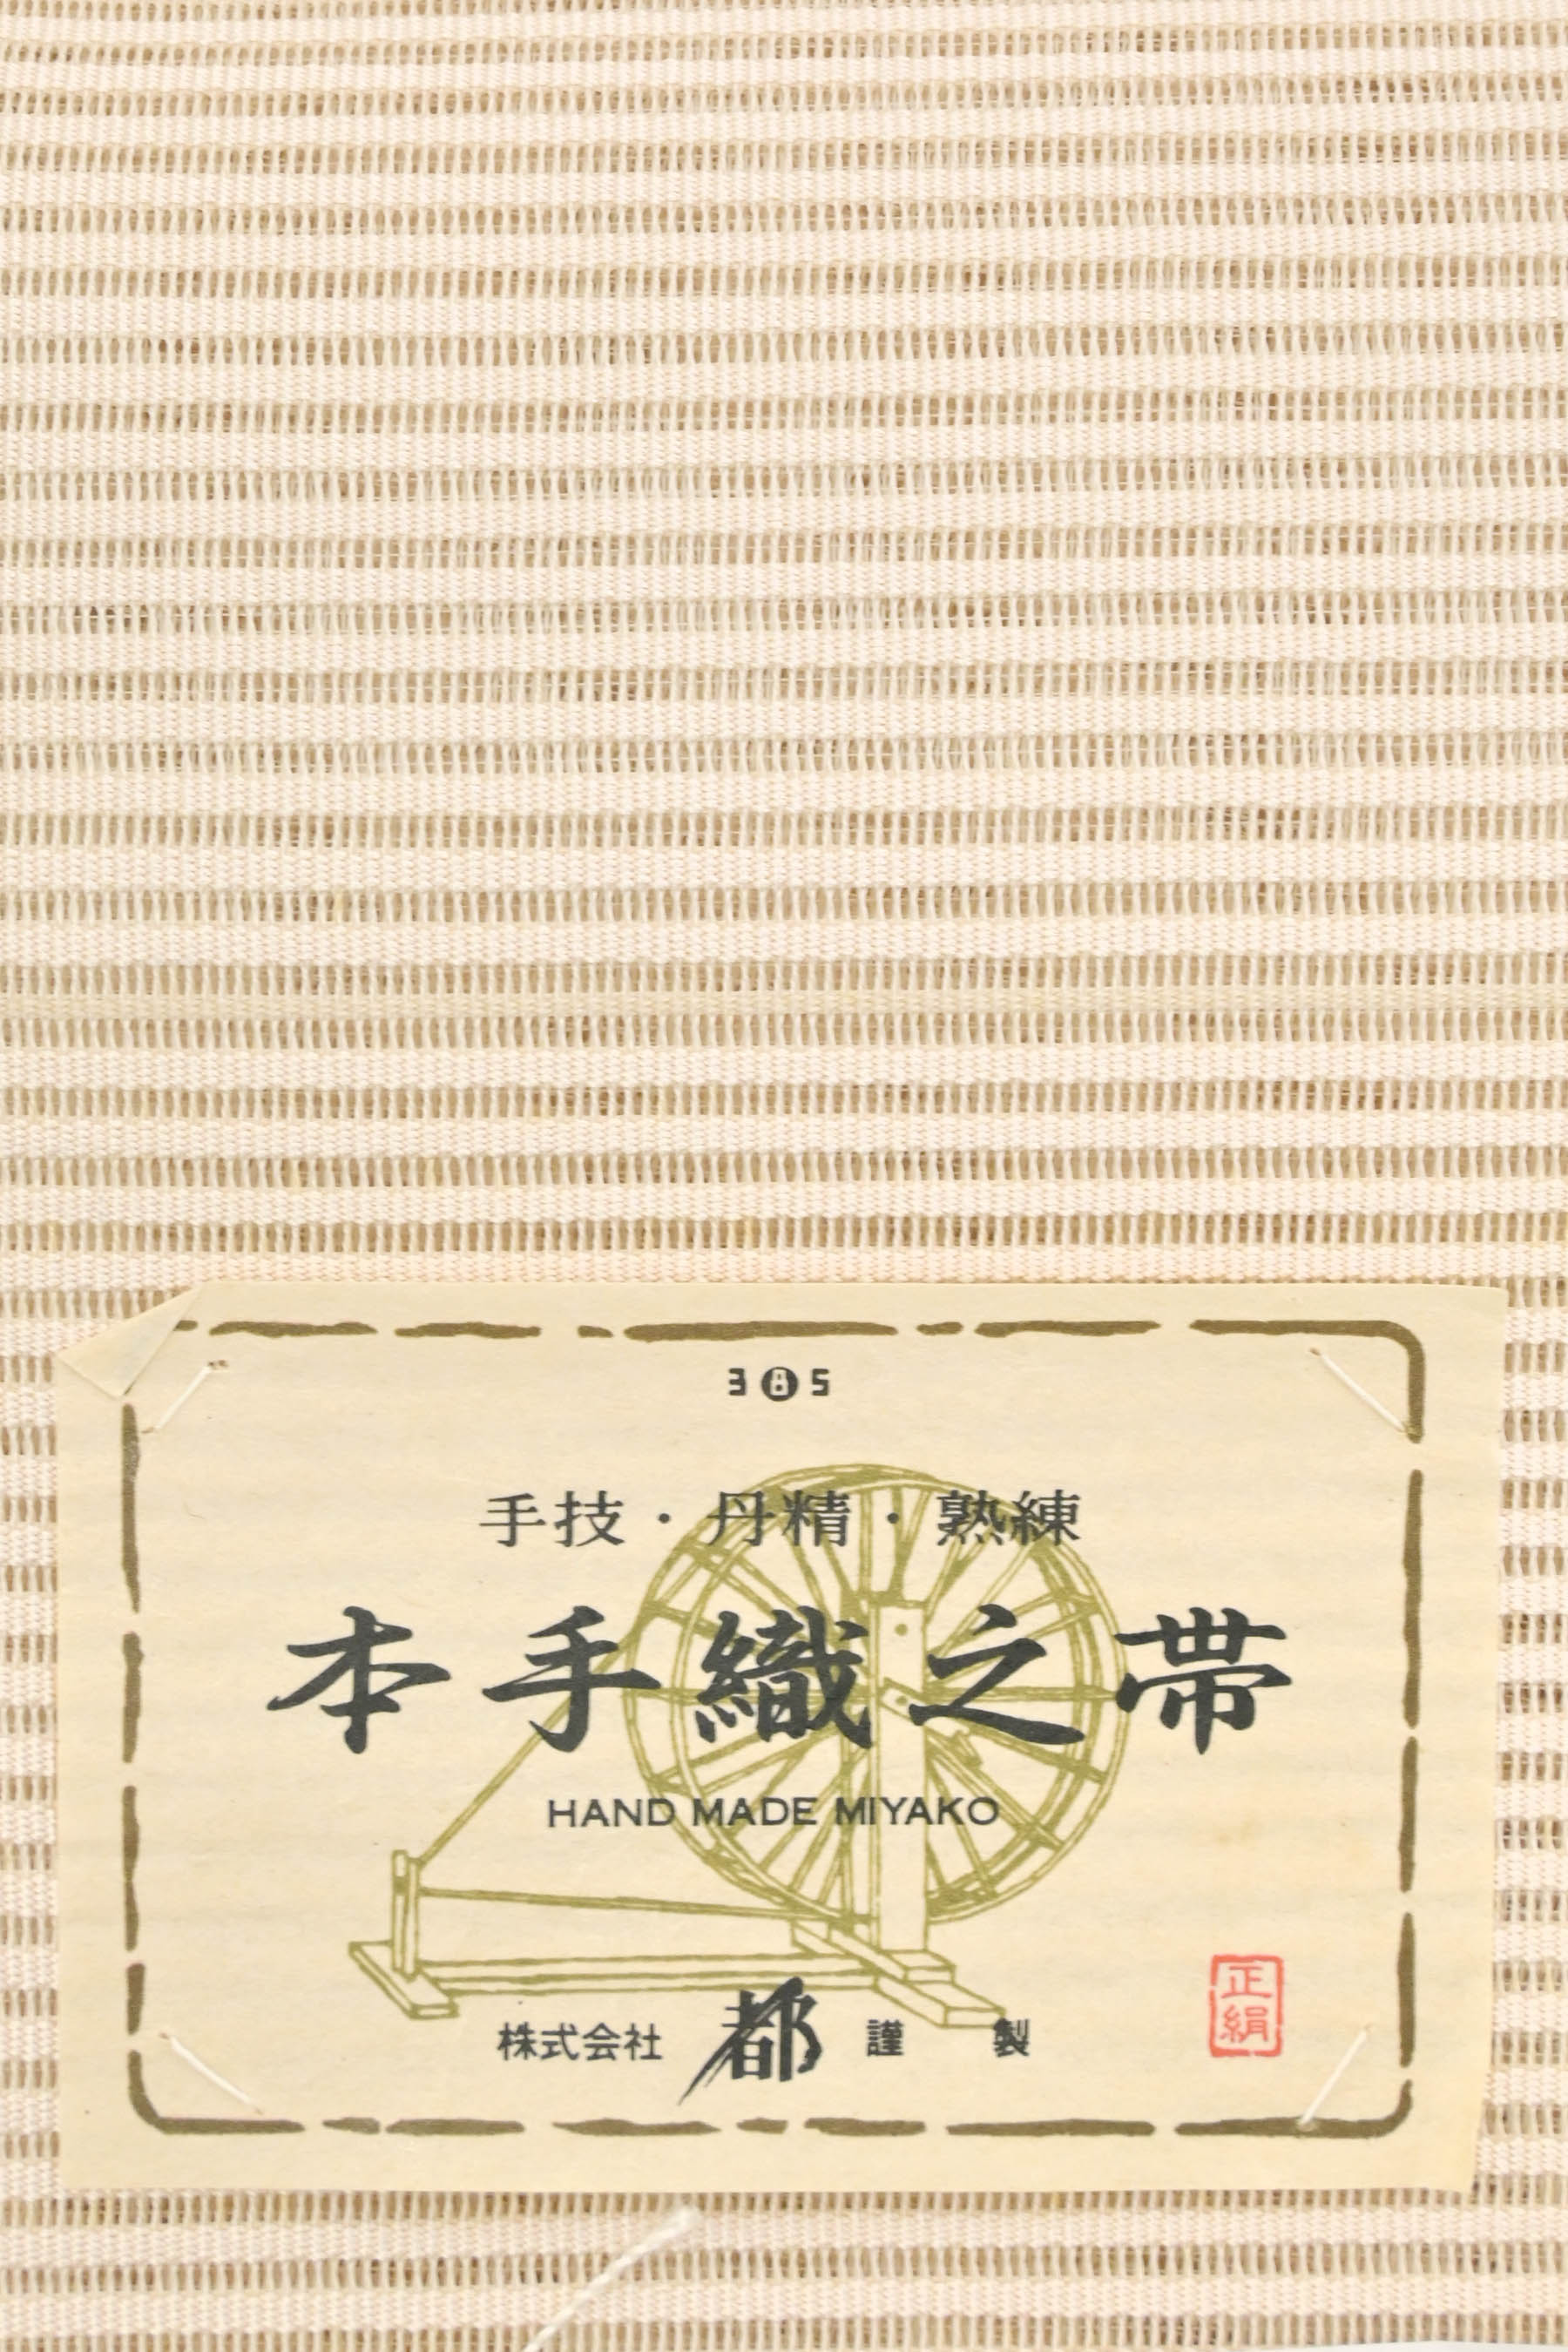 385
手技・丹精・熟練
本手織之帯
HAND MADE MIYAKO
株式会社 都 謹製
正絹